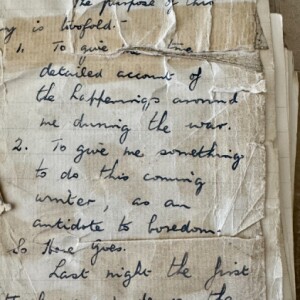 The purpose of this
y is twofold:-
1. To give
detailed account of
the happenings around
me during the war.
2. To give me something
to do this coming
winter, as an
antidote to boredom.
So here goes.
Last night the first